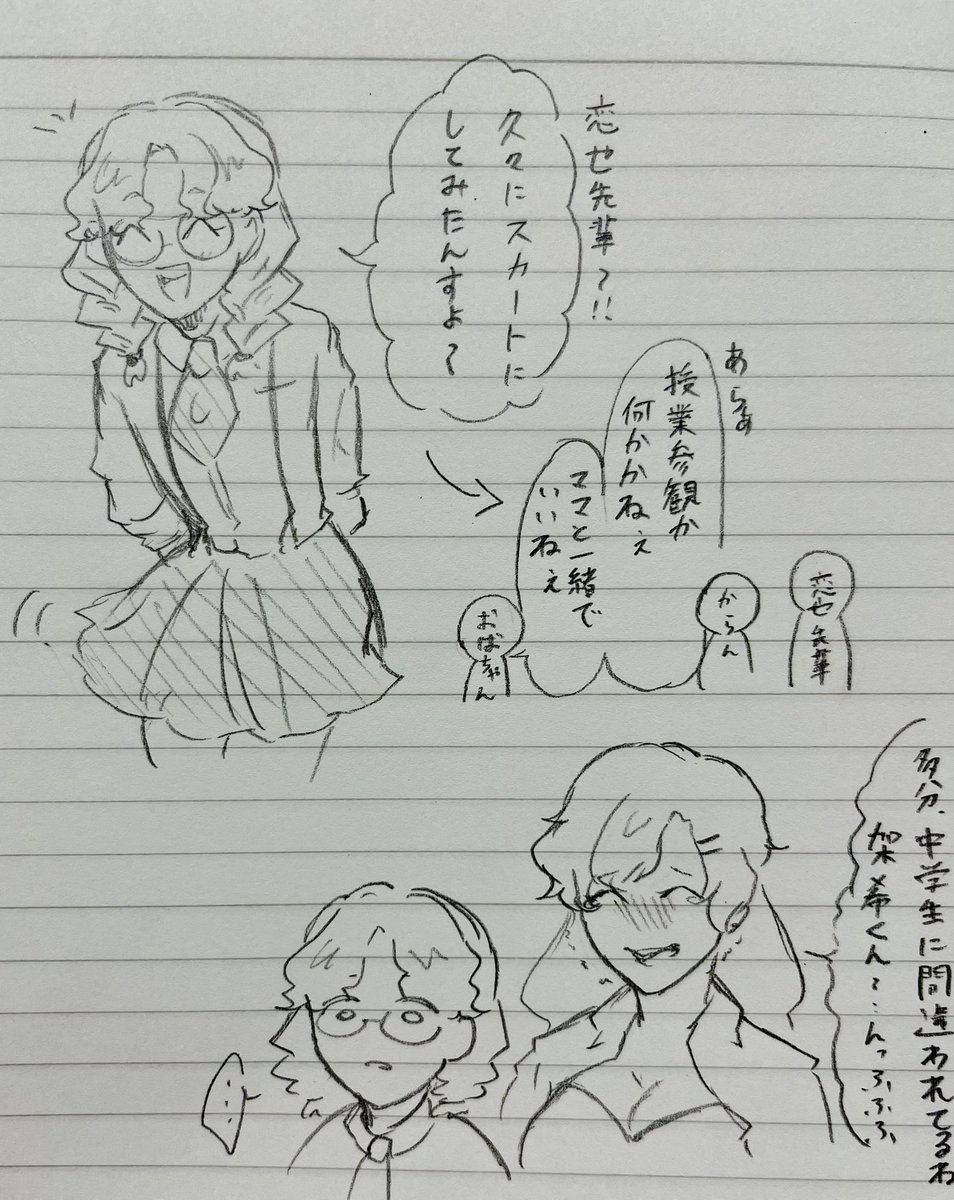 恋也先輩〜!!
久々にスカートに
してみたんすよ〜
あらぁ
授業参観か
何かかねぇ
ママと一緒で
いいねぇ
恋也先輩
からん
おばちゃん
多分、中学生に間違われてるわ
架希くん〜…んっふふふふ
…